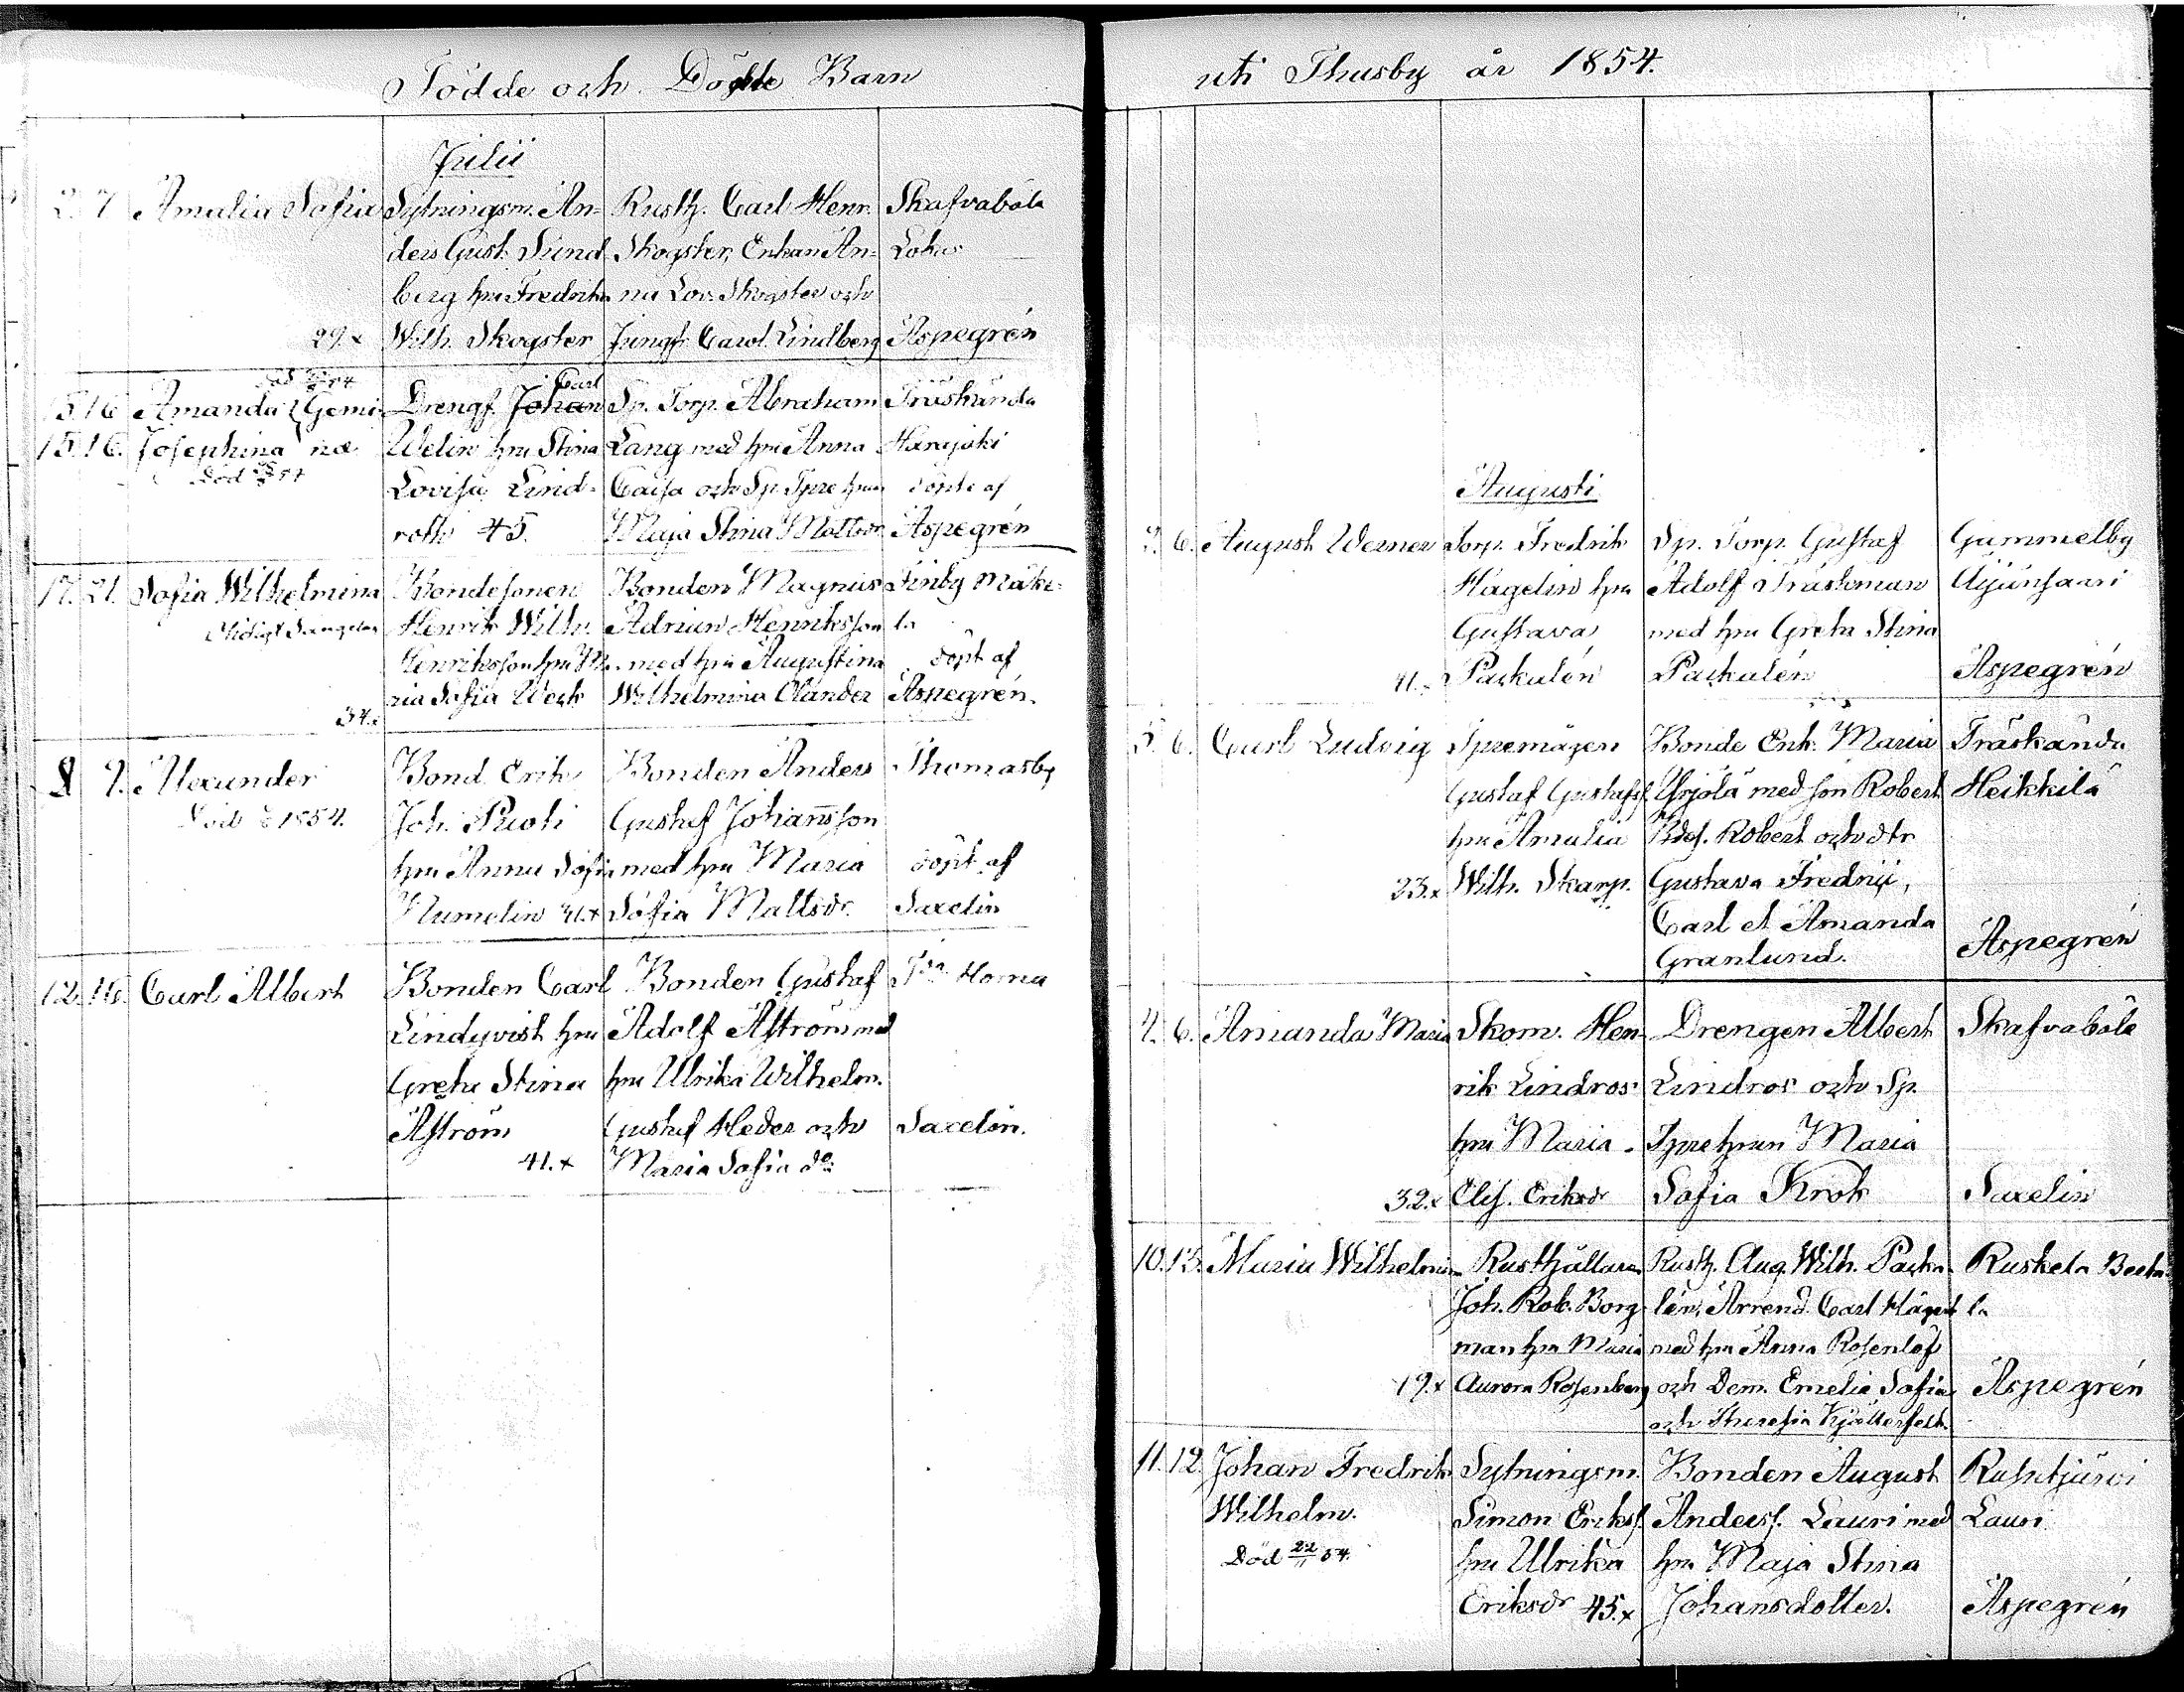 Födde och Döpte Barn
Julii
2. 7. Amalia Sofia Sytningsm. An= Rusth. Carl Henr. Skafvaböle
ders Gust. Sund Skogster, Enkan An= Lokis
berg hu Fredrika na Lov. Skogster och
29.x Wilh. Skogster Jungf. Carol. Lindberg Aspegrén
15. 16. Amanda Gemi Drengf. Johan Carl Sp. Torp. Abraham Träskända
15. 16. Josephina næ Welin hu Stina Lang med hu Anna Harajoki
Död 54 Lovisa Lind- Caisa och Sp. döpte af
roth 45. Maja Stina Mattsdr Aspegrén
17. 21. Sofia Wilhelmina Bondesonen Bonden Magnus Finby Mäke=
Henrik Wilh. Adrian Henriksson la
Henriksson hu Ma med hu Augustina döpt af
34.x ria Sofia Weck Wilhelmina Olander Aspegrén.
8 9. Alexander Bond. Erik Bonden Anders Thomasby
Död 1854. Joh. Puoti Gustaf Johansson
hu Anna Sofia med hu Maria döpt af
Numelin 41.x Sofia Mattsdr. Saxelin
12. 16. Carl Albert Bonden Carl Bonden Gustaf Homa
Lindqvist hu Adolf Åström med
Greta Stina hu Ulrika Wilhelm.
Åström Gustaf Heder och Saxelin.
41.x Maria Sofia do:
uti Thusby år 1854.
Augusti
6. August Werner Torp. Fredrik Sp. Torp. Gustaf Gammelby
Hagelin hu Adolf Träskman
Gustava med hu Greta Stina
41.x Packalén Packalén Aspegrén
5. 6. Carl Ludvig Spremågen Bonde Enk. Maria Träskända
Gustaf Gustafss. Yrjölä med son Robert Heikkilä
hu Amalia Bdes. Robert och dtr
23.x Wilh. Skarp. Gustava Fredrii,
Carl et Amanda
Granlund. Aspegrén
4. 6. Amanda Maria Skom. Hen- Drengen Albert Skafvaböle
rik Lindros Lindros och Sp.
hu Maria Maria
32.x Elis. Eriksdr Sofia Krok Saxelin
10. 13. Maria Wilhelmin Rusthållaren Rusth. Aug. Wilh. Packa- Ruskela
Joh. Rob. Borg lén, Arrend. Carl la
man hu Maria med hu Anna Rosenlöf
19.x Aurora Rosenberg och Dem. Emelie Sofia Aspegrén
och Theresia
11. 12. Johan Fredrik Sytningsm. Bonden August Rusutjärvi
Wilhelm. Simon Erikss. Anderss. Lauri med Lauri
Död 22/11 54. hu Ulrika hu Maja Stina
Eriksdr 45.x Johansdotter. Aspegrén